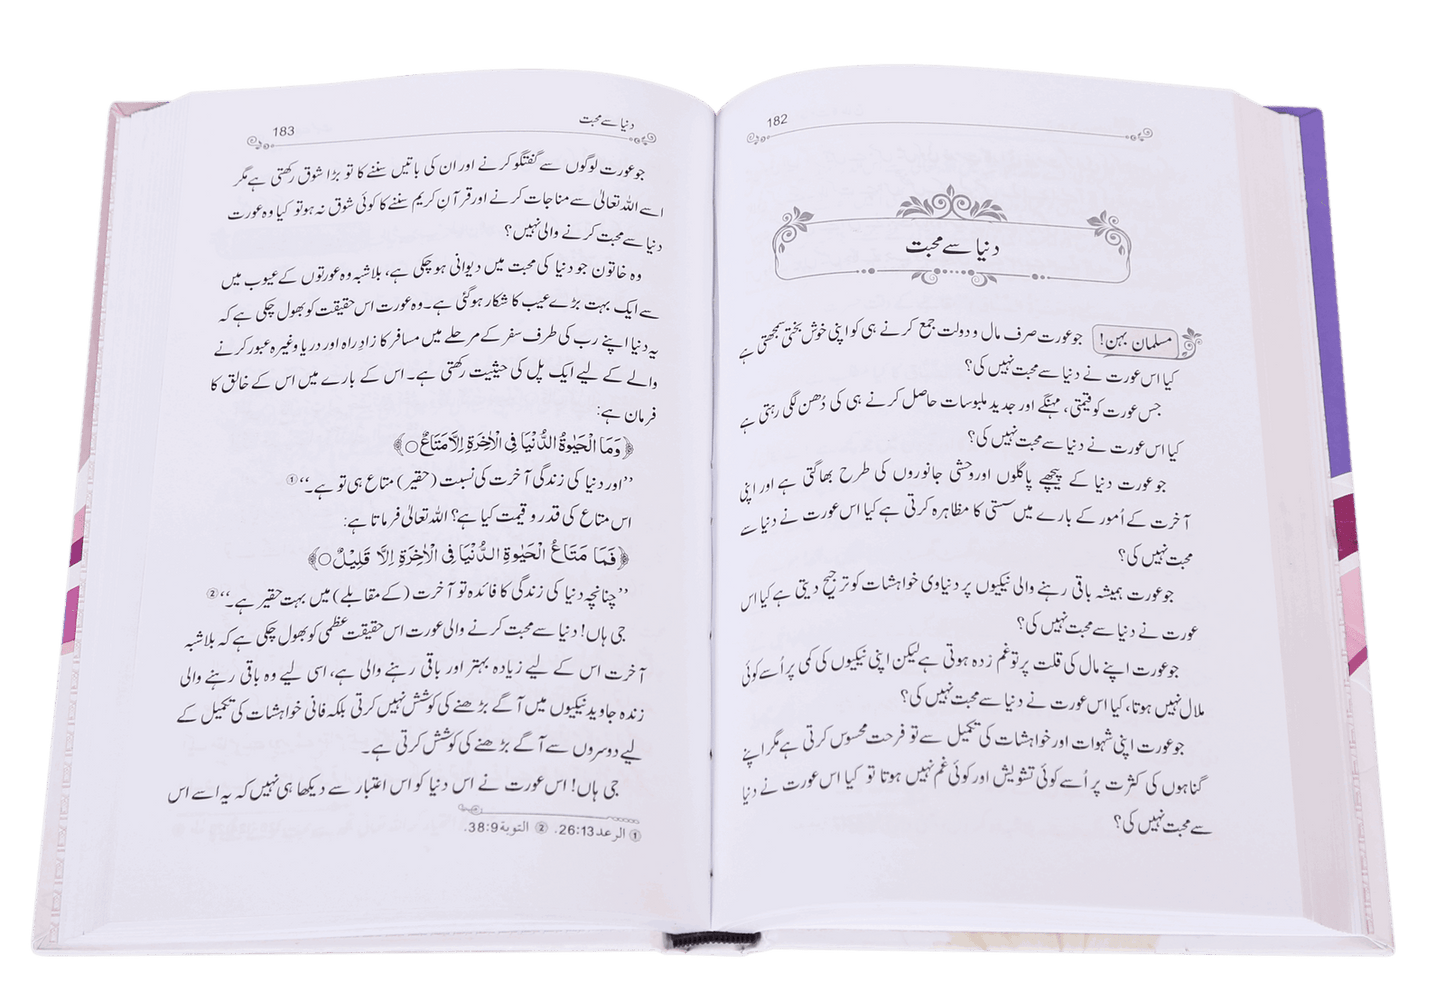 182
دنیا سے محبت
مسلمان بہن! جو عورت صرف مال و دولت جمع کرنے ہی کو اپنی خوش بختی سمجھتی ہے
کیا اس عورت نے دنیا سے محبت نہیں کی؟
جس عورت کو قیمتی، مہنگے اور جدید ملبوسات حاصل کرنے ہی کی دُھن لگی رہتی ہے
کیا اس عورت نے دنیا سے محبت نہیں کی؟
جو عورت دنیا کے پیچھے پاگلوں اور وحشی جانوروں کی طرح بھاگتی ہے اور اپنی
آخرت کے اُمور کے بارے میں سستی کا مظاہرہ کرتی ہے کیا اس عورت نے دنیا سے
محبت نہیں کی؟
جو عورت ہمیشہ باقی رہنے والی نیکیوں پر دنیاوی خواہشات کو ترجیح دیتی ہے کیا اس
عورت نے دنیا سے محبت نہیں کی؟
جو عورت اپنے مال کی قلت پر تو غم زدہ ہوتی ہے لیکن اپنی نیکیوں کی کمی پر اُسے کوئی
ملال نہیں ہوتا، کیا اس عورت نے دنیا سے محبت نہیں کی؟
جو عورت اپنی شہوات اور خواہشات کی تکمیل سے تو فرحت محسوس کرتی ہے مگر اپنے
گناہوں کی کثرت پر اُسے کوئی تشویش اور کوئی غم نہیں ہوتا تو کیا اس عورت نے دنیا
سے محبت نہیں کی؟
دنیا سے محبت 183
جو عورت لوگوں سے گفتگو کرنے اور ان کی باتیں سننے کا تو بڑا شوق رکھتی ہے مگر
اسے اللہ تعالیٰ سے مناجات کرنے اور قرآنِ کریم سننے کا کوئی شوق نہ ہو تو کیا وہ عورت
دنیا سے محبت کرنے والی نہیں؟
وہ خاتون جو دنیا کی محبت میں دیوانی ہو چکی ہے، بلاشبہ وہ عورتوں کے عیوب میں
سے ایک بہت بڑے عیب کا شکار ہو گئی ہے۔ وہ عورت اس حقیقت کو بھول چکی ہے کہ
یہ دنیا اپنے رب کی طرف سفر کے مرحلے میں مسافر کا زادِ راہ اور دریا وغیرہ عبور کرنے
والے کے لیے ایک پل کی حیثیت رکھتی ہے۔ اس کے بارے میں اس کے خالق کا
فرمان ہے:
﴿وَمَا الْحَيٰوةُ الدُّنْيَا فِي الْاٰخِرَةِ اِلَّا مَتَاعٌ○﴾
’’اور دنیا کی زندگی آخرت کی نسبت (حقیر) متاع ہی تو ہے۔‘‘①
اس متاع کی قدر و قیمت کیا ہے؟ اللہ تعالیٰ فرماتا ہے:
﴿فَمَا مَتَاعُ الْحَيٰوةِ الدُّنْيَا فِي الْاٰخِرَةِ اِلَّا قَلِيْلٌ○﴾
’’چنانچہ دنیا کی زندگی کا فائدہ تو آخرت (کے مقابلے) میں بہت حقیر ہے۔‘‘②
جی ہاں! دنیا سے محبت کرنے والی عورت اس حقیقت عظمیٰ کو بھول چکی ہے کہ بلاشبہ
آخرت اس کے لیے زیادہ بہتر اور باقی رہنے والی ہے، اسی لیے وہ باقی رہنے والی
زندہ جاوید نیکیوں میں آگے بڑھنے کی کوشش نہیں کرتی بلکہ فانی خواہشات کی تکمیل کے
لیے دوسروں سے آگے بڑھنے کی کوشش کرتی ہے۔
جی ہاں! اس عورت نے اس دنیا کو اس اعتبار سے دیکھا ہی نہیں کہ یہ اسے اس
① الرعد 26:13. ② التوبة 38:9.